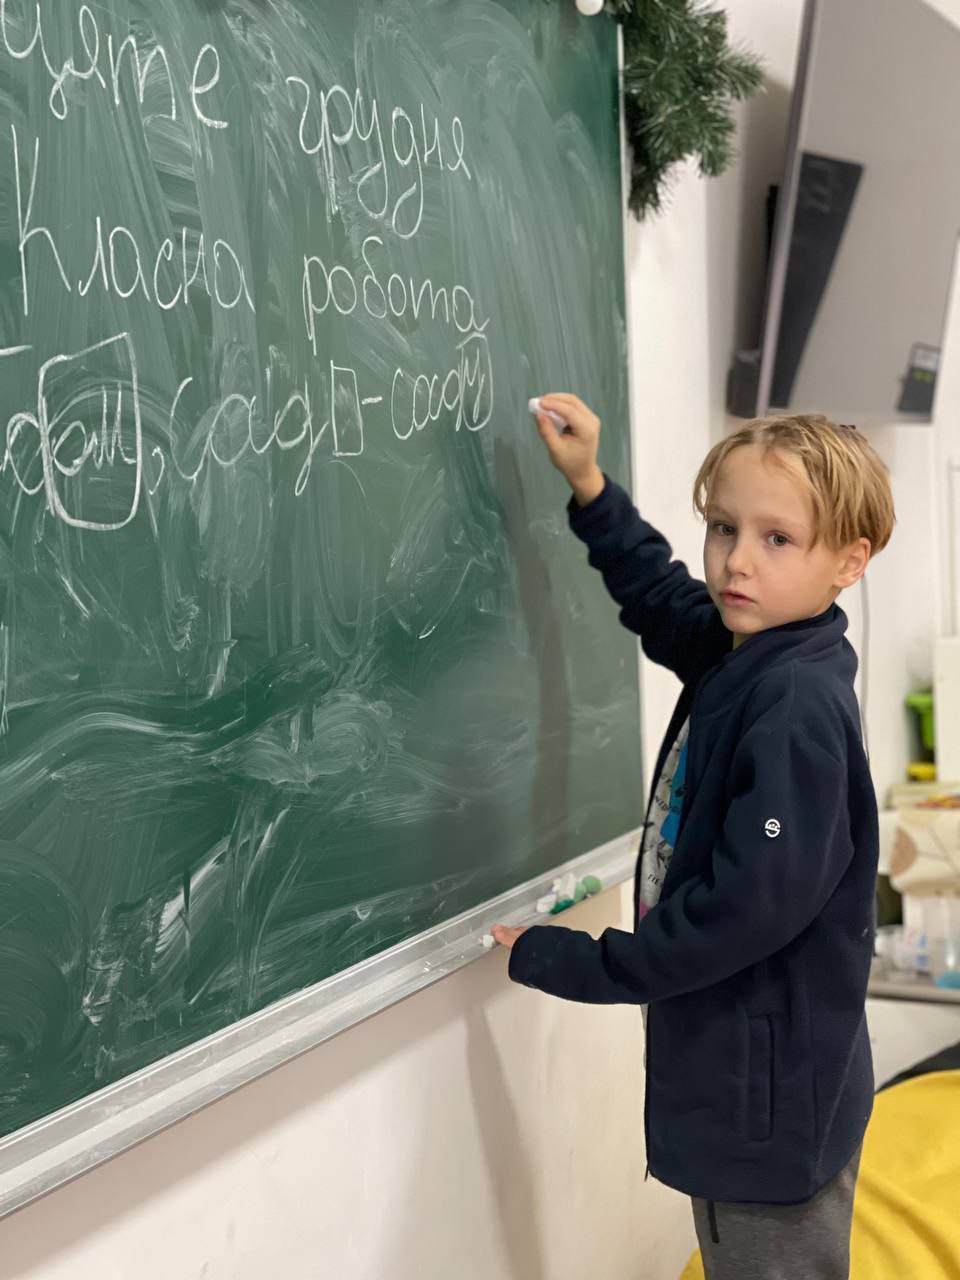 цяте грудня
Класна робота
дам, сад - саду